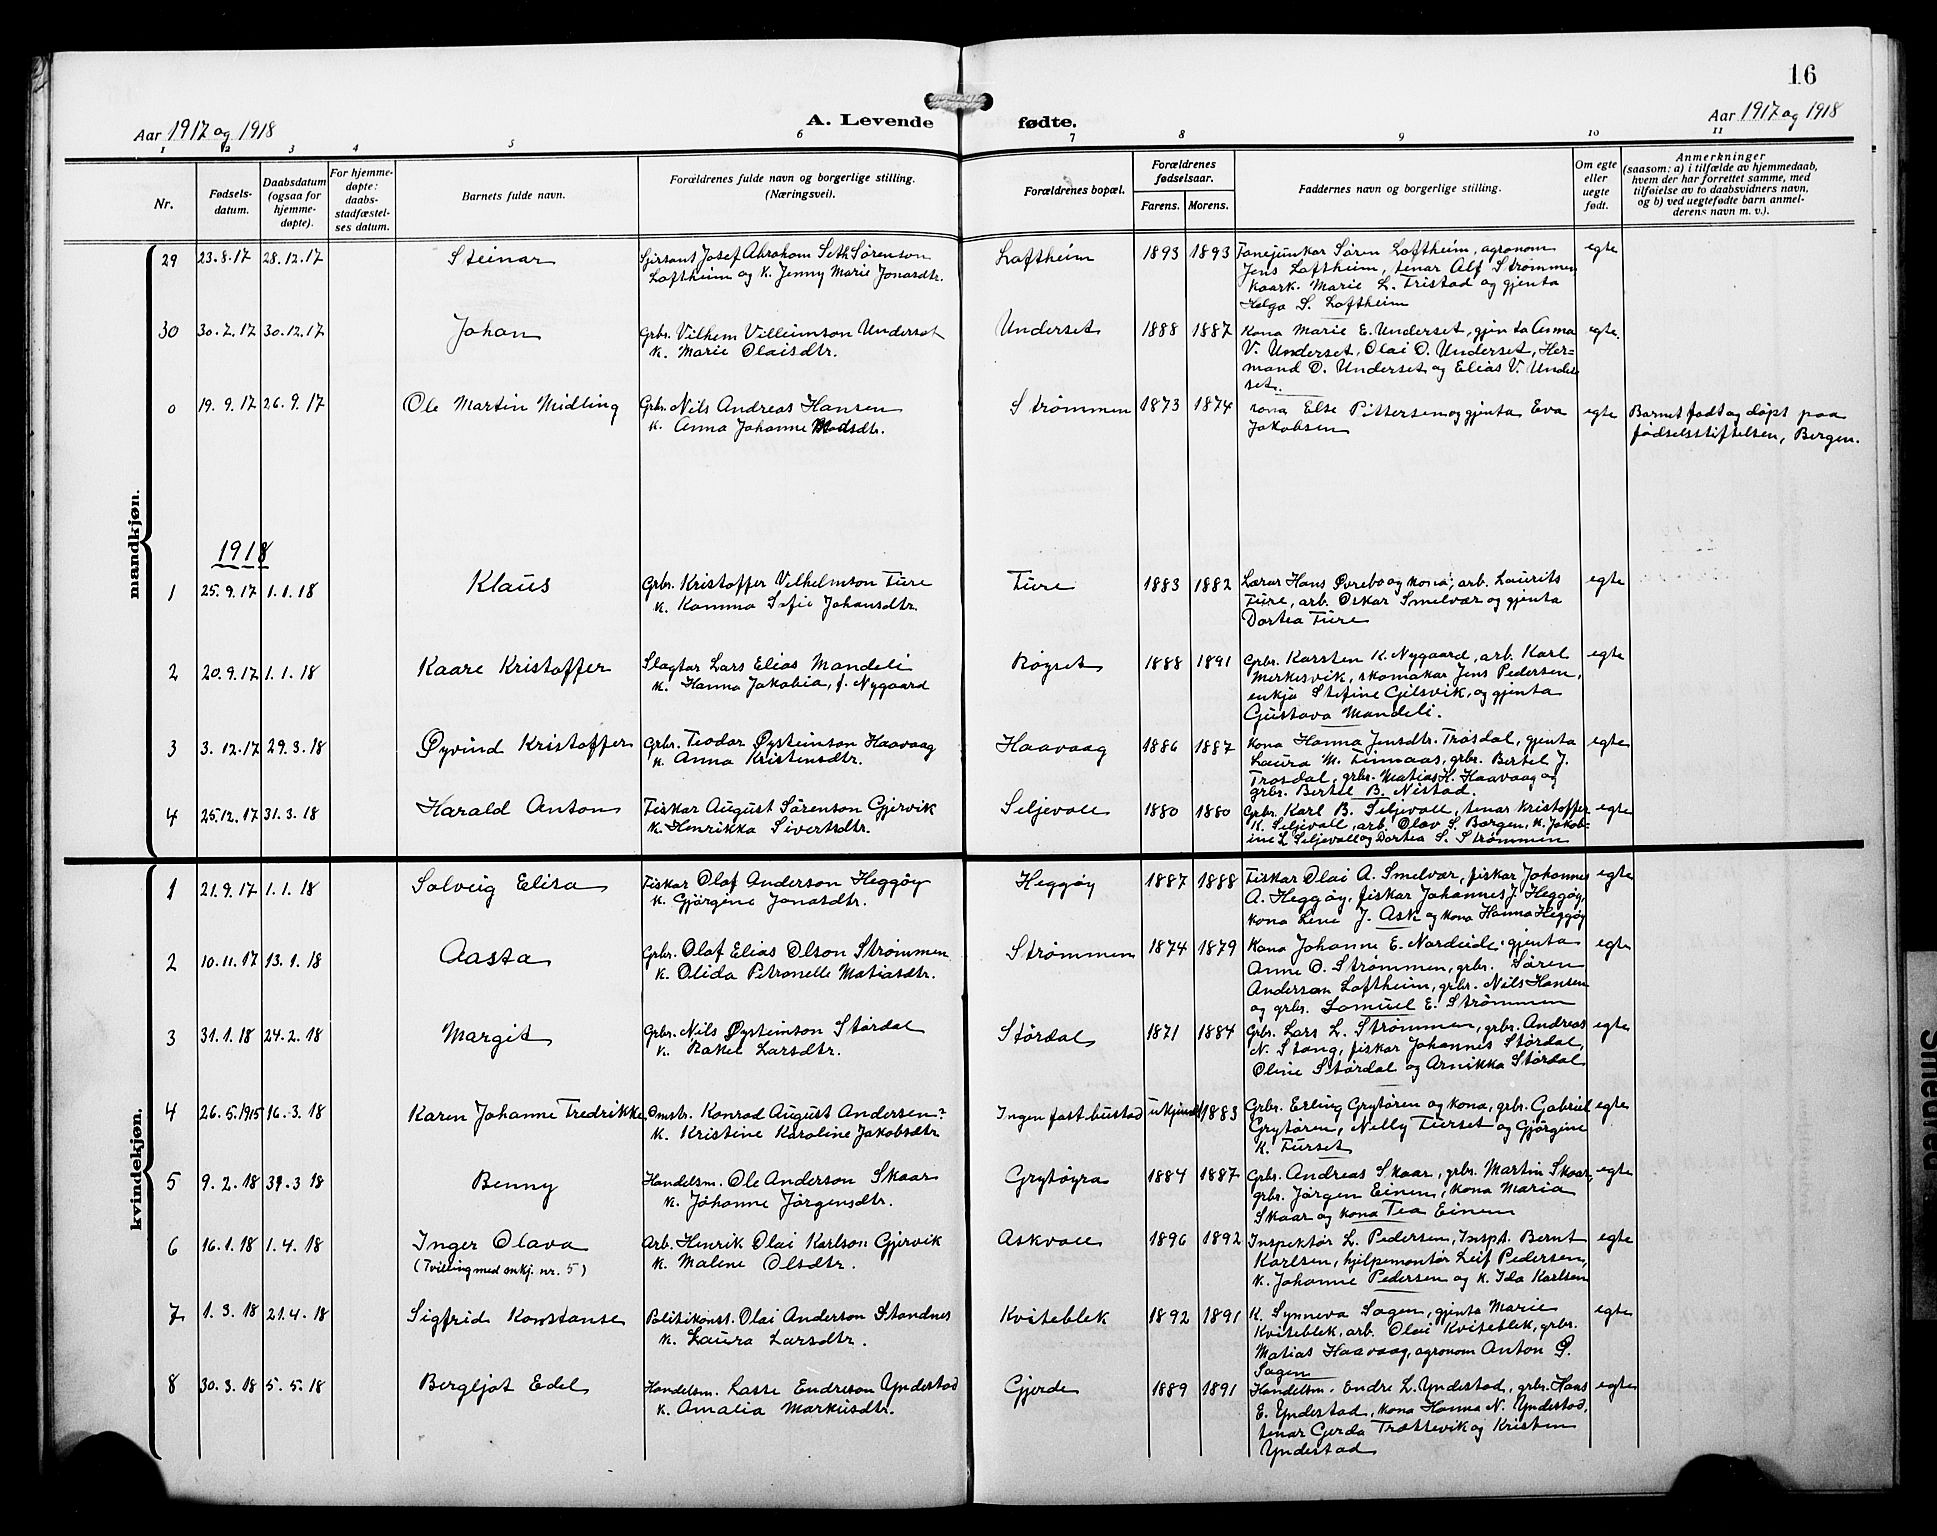 16
Aar 1917 og 1918
A. Levende fødte.
Aar 1917 og 1918
1 2 3 4 5 6 7 8 9 10 11
Nr.
Fødsels-
datum.
Daabsdatum
(ogsaa for
hjemme-
døpte).
For hjemme-
døpte:
daabs-
stadfæstel-
ses datum.
Barnets fulde navn.
Forældrenes fulde navn og borgerlige stilling.
(Næringsvei).
Forældrenes bopæl.
Forældrenes
fødselsaar.
Farens. Morens.
Faddernes navn og borgerlige stilling.
Om egte
eller
uegte
født.
Anmerkninger
(saasom: a) i tilfælde av hjemmedaab,
hvem der har forrettet samme, med
tilføielse av to daabsvidners navn,
og b) ved uegtefødte barn anmel-
derens navn m. v.).
mandkjøn.
29 23.8.17 28.12.17 Steinar
Josef Abraham Seth Sørenson
Loftheim og k. Jenny Marie Jonasdtr.
Loftheim 1893 1893
Fanejunkar Søren Loftheim, agronom
Jens Loftheim, tenar Alf Strømmen
kaark. Marie L. Tristad og gjenta
Helga S. Loftheim
egte
30 30.7.17 30.12.17 Johan
Grbr. Vilhem Villeimson Underset
k. Marie Olaisdtr.
Underset 1888 1887
Kona Marie E. Underset, gjenta Anna
V. Underset, Olai O. Underset, Her=
mand O. Underset og Elias V. Under
set.
egte.
0 19.9.17 26.9.17 Ole Martin Midling
Grbr. Nils Andreas Hansen
k. Anna Johanne Madsdtr.
Strømmen 1873 1874
kona Else Pittersen og gjenta Eva
Jakobsen
egte
Barnet født og døpt paa
fødselsstiftelsen, Bergen.
1918
1 25.9.17 1.1.18 Klaus
Grbr. Kristoffer Vilhelmson Fure
k. Kamma Sofie Johansdtr.
Fure 1883 1882
Lærar Hans Øvrebo og kona; arb. Laurits
Fure, arb. Oskar Smelvær og gjenta
Dortea Fure
egte
2 20.9.17 1.1.18 Kaare Kristoffer
Slagtar Lars Elias Mandeli
k. Hanna Jakobia, f. Nygaard
Røyset 1888 1891
Grbr. Karsten K. Nygaard, arb. Karl
Merkesvik, skomakar Jens Pedersen,
enkja Stefine Gilsvik, og gjenta
Gustava Mandeli.
egte
3 3.12.17 29.3.18 Øyvind Kristoffer
Grbr. Teodor Øysteinson Haavaag
k. Anna Kristensdtr.
Haavaag 1886 1887
Kona Hanna Jensdtr. Trosdal, gjenta
Laura M. Timaas, grbr. Bertel J.
Trosdal, grbr. Matias H. Haavaag og
grbr. Bertel B. Nistad.
egte
4 25.12.17 31.3.18 Harald Anton
Fiskar August Sørenson Gjervik
k. Henrikka Sivertsdtr.
Seljevoll 1880 1880
Grbr. Karl B. Seljevoll, tenar Kristoffer
K. Seljevoll, arb. Olav S. Borgen, k. Jakob=
ine L Seljevoll og Dortea S. Strømmen
egte
kvindekjøn.
1 21.9.17 1.1.18 Solveig Elisa
Fiskar Olaf Anderson Heggøy
k. Gjørgine Jonasdtr.
Heggøy 1887 1888
Fiskar Olai A. Smelvær, fiskar Johannes
A. Heggøy, fiskar Johannes J. Heggøy,
kona Line J. Ask og kona Hanna Heggøy
egte
2 10.11.17 13.1.18 Aasta
Grbr. Olaf Elias Olson Strømmen
k. Olida Petronelle Matiasdtr.
Strømmen 1874 1879
Kona Johanne E. Nardeide, gjenta
Anne O. Strømmen, grbr. Søren
Anderson Loftheim, grbr. Nils Hansen
og grbr. Samuel E. Strømmen
egte
3 31.1.18 24.2.18 Margit
Grbr. Nils Øysteinson Størdal
k. Rakel Larsdtr.
Størdal 1871 1884
Grbr. Lars L. Strømmen, grbr. Andreas
N. Stang, fiskar Johannes Størdal,
Oline Størdal og Arnikka Størdal
egte
4 26.5.1915 16.3.18 Karen Johanne Fredrikke
Omstr. Konrad August Andersen?
k. Kristine Karoline Jakobsdtr
Ingen fast bustad ukjend 1883
Grbr. Erling Grytøren og kona, grbr. Gabriel
Grytøren, Nelly Furset og Gjørgine
K. Furset
egte
5 9.2.18 3.18 Benny
Handelsm. Ole Anderson Skaar
k. Johanne Jørgensdtr.
Grytøyra 1884 1887
Grbr. Andreas Skaar, grbr. Martin Skaar,
grbr. Jørgen Einen, kona Maria
Skaar og kona Tea Einen
egte
6 16.1.18 1.4.18 Inger Olava
(Tvilling med mkj. nr. 5)
Arb. Henrik Olai Karlson Gjervik
k. Malene Olsdtr.
Askvoll 1896 1892
Inspektør L. Pedersen, Inspt. Bernt
Karlsen, hjelpemontør Leif Pedersen,
k. Johanne Pedersen og k. Ida Karlsen
egte
7 1.3.18 21.4.18 Sigfrid Konstanse
Politikonst. Olai Anderson Standnes
k. Laura Larsdtr.
Kviteblek 1892 1891
K. Synneva Sagen, gjenta Marie
Kviteblek, arb. Olai Kviteblek, grbr.
Matias Haavaag, agronom Anton P.
Sagen
egte
8 30.3.18 5.5.18 Bergljot Edel
Handelsm. Lasse Endreson Yndestad
k. Amalia Markusdtr.
Gjerde 1889 1891
Handelsm. Endre L. Yndestad, grbr. Hans
E. Yndestad, kona Hanna N. Yndestad,
tenar Gjerda Trættevik og Kristen
Yndestad
egte